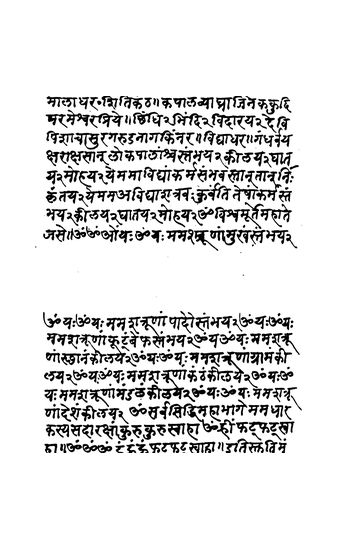 मालाधर॰शितिकंठ॥कपालव्याघ्राजिनककुद्दि
परमेश्वरप्रिये॥छिंधि२भिंदि२विदारय२देवि
पिशाचासुरगरुडनागकिंनर॥विद्याधर॥गंधर्वय
क्षराक्षसान् लोकपालांश्चस्तंभय२कीलय२घात
य२मोहय२येममाविद्यांकर्मसंभवस्तान्
कृंतय२येममअविद्याशत्रवःकुर्वंतितेषांकर्मस्तं
भय२कीलय२घातय२मोहय२ॐविश्वमूर्तेमहाते
जसे॥ॐॐओंयःॐयः ममशत्रूणांमुखंस्तंभय२
ॐयःॐयः ममशत्रूणांपादौस्तंभय२ॐयःॐयः
ममशत्रूणांकूटंबंस्तंभय२ॐयःॐयः ममशत्रू
णांस्छानंकीलय२ॐयःॐयः ममशत्रूणांग्रामंकी
लय२ॐयःॐयः ममशत्रूणांकंठंकीलय२ॐयःॐ
यः ममशत्रूणांमंडलंकीलय२ॐयःॐयः ममशत्रू
णांदेशंकीलय२ ॐसर्वसिद्धिमहाभागेममधार
कस्यसदारक्षांकुरुकुरुस्वाहा ॐह्रींफट्फट्स्वा
हा॥ॐॐॐ ठंठंठंफट्फट्स्वाहा॥इति